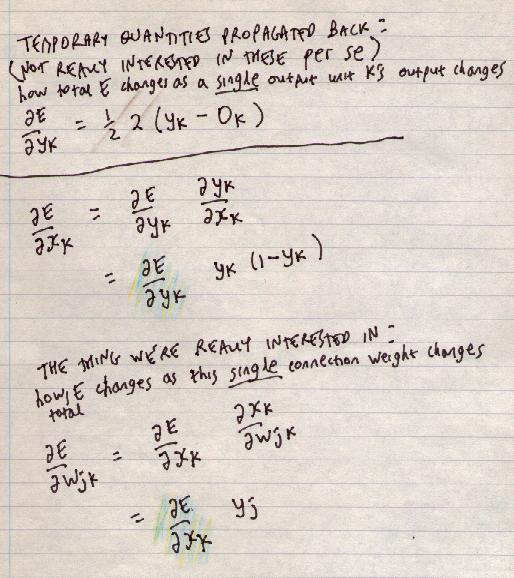 TEMPORARY QUANTITIES PROPAGATED BACK:
(NOT REALLY INTERESTED IN THESE per se)
how total E changes as a single output unit K's output changes
∂E/∂yK = 1/2 2 (yK - OK)
∂E/∂xK = ∂E/∂yK ∂yK/∂xK
= ∂E/∂yK yK (1-yK)
THE THING WE'RE REALLY INTERESTED IN:
how total E changes as this single connection weight changes
∂E/∂wjK = ∂E/∂xK ∂xK/∂wjK
= ∂E/∂xK yj